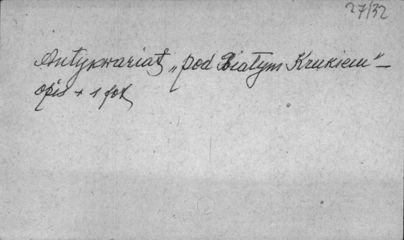 27/32
Antykwariat „pod Białym Krukiem" –
opis + 1 fot